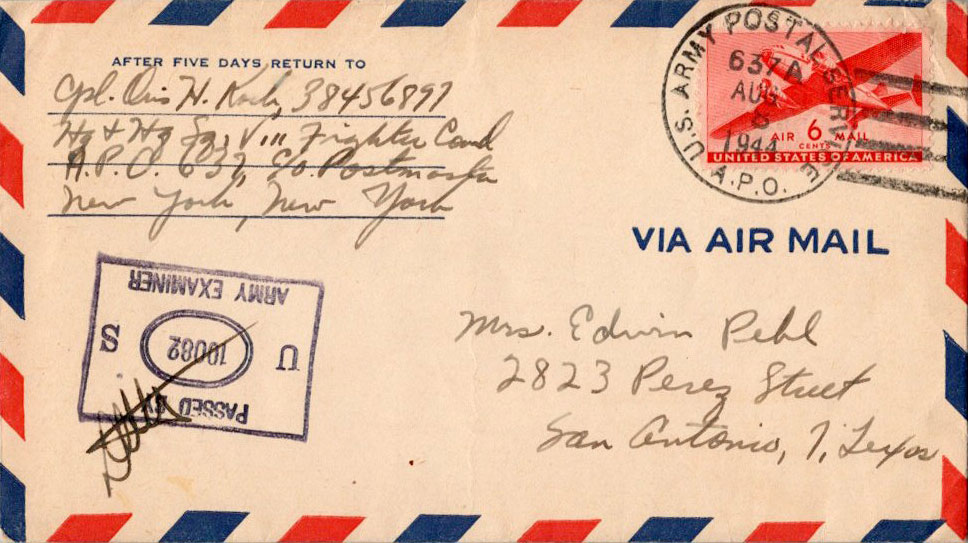 AFTER FIVE DAYS RETURN TO
Cpl. H. Koch, 38456897
Hq & Hq Sq, VIII Fighter Comd
A.P.O. 637, c/o Postmaster
New York, New York
U.S. ARMY POSTAL SERVICE
637A
AUG
8
1944
A.P.O.
AIR 6 MAIL
CENTS
UNITED STATES OF AMERICA
VIA AIR MAIL
Mrs. Edwin Pehl
2823 Perez Street
San Antonio, 7, Texas
PASSED BY
U 10082 S
ARMY EXAMINER